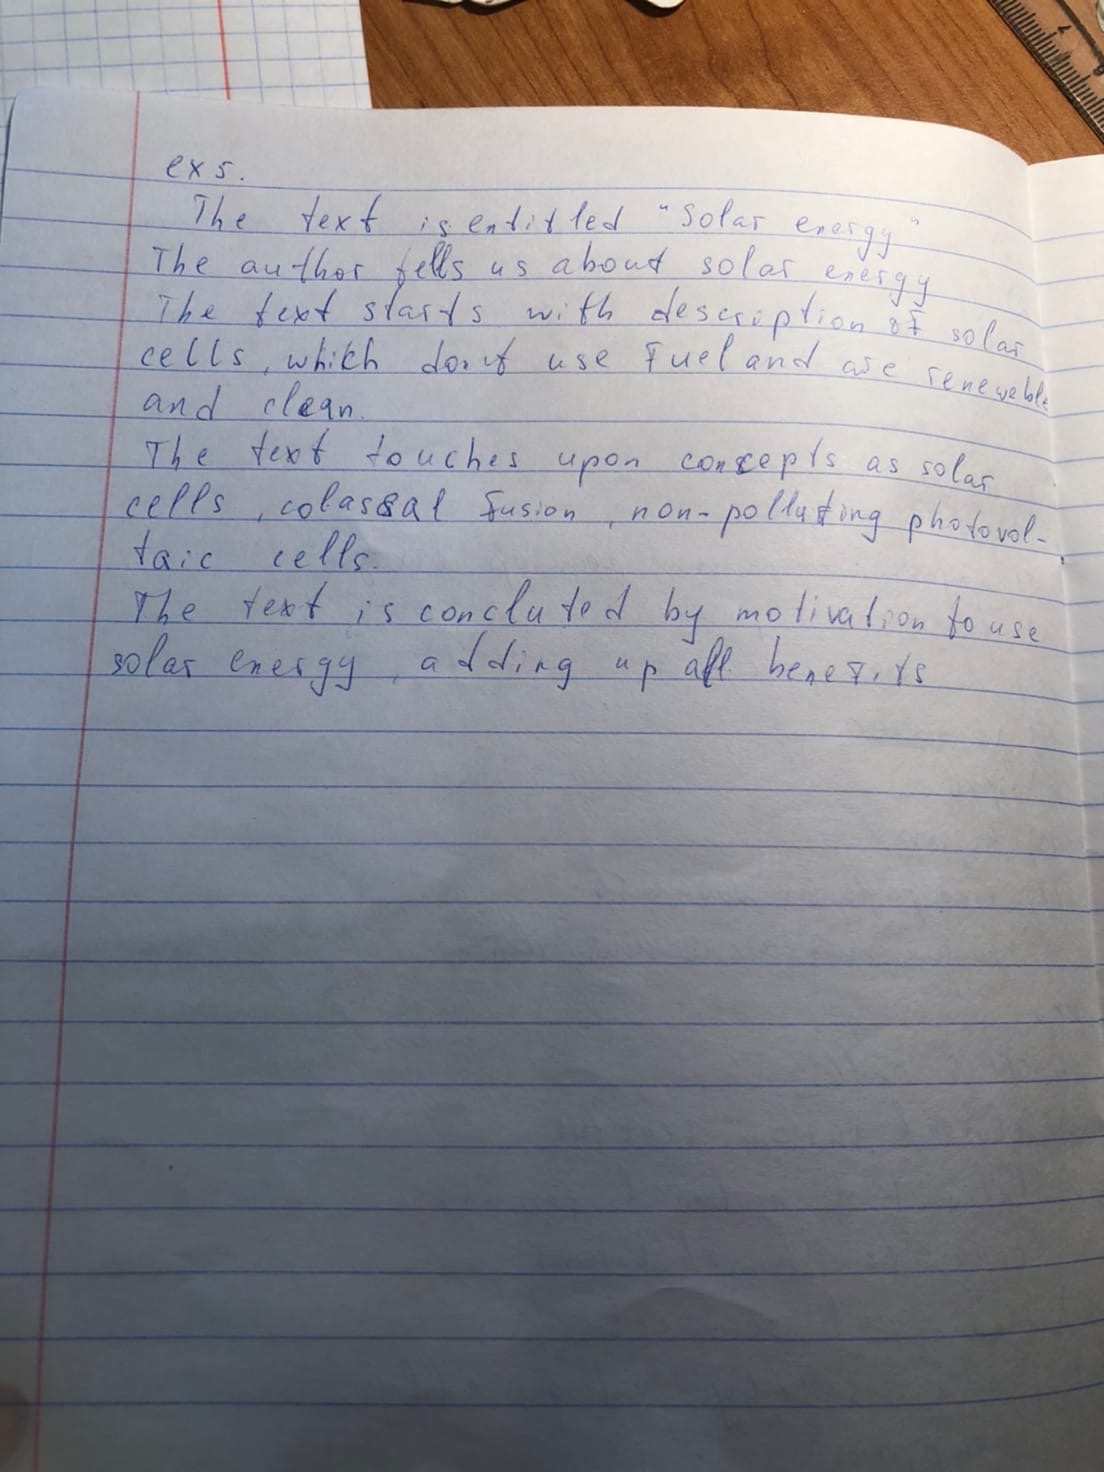 ex 5.
The text is entitled "Solar energy"
The author tells us about solar energy
The text starts with description of solar
cells, which don't use fuel and are renewable
and clean.
The text touches upon concepts as solar
cells, colassal fusion, non-polluting photovol-
taic cells.
The text is concluted by motivation to use
solar energy, adding up all benefits